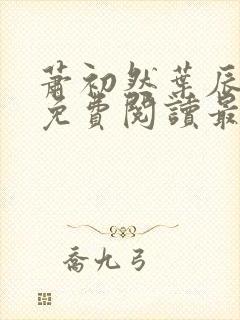 蕭初然葉辰
免費閱讀最
喬九弓